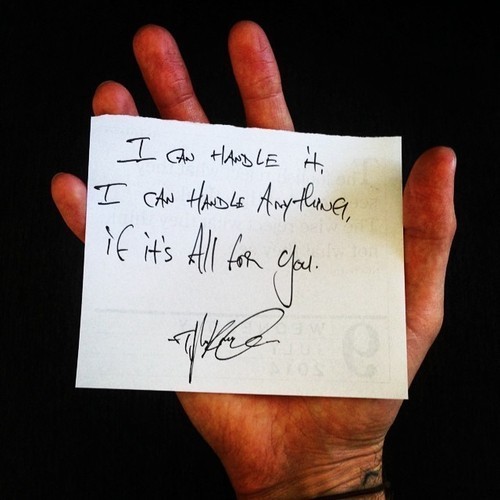 I CAN HANDLE it,
I CAN HANDLE ANythiNG,
if it's All for you.